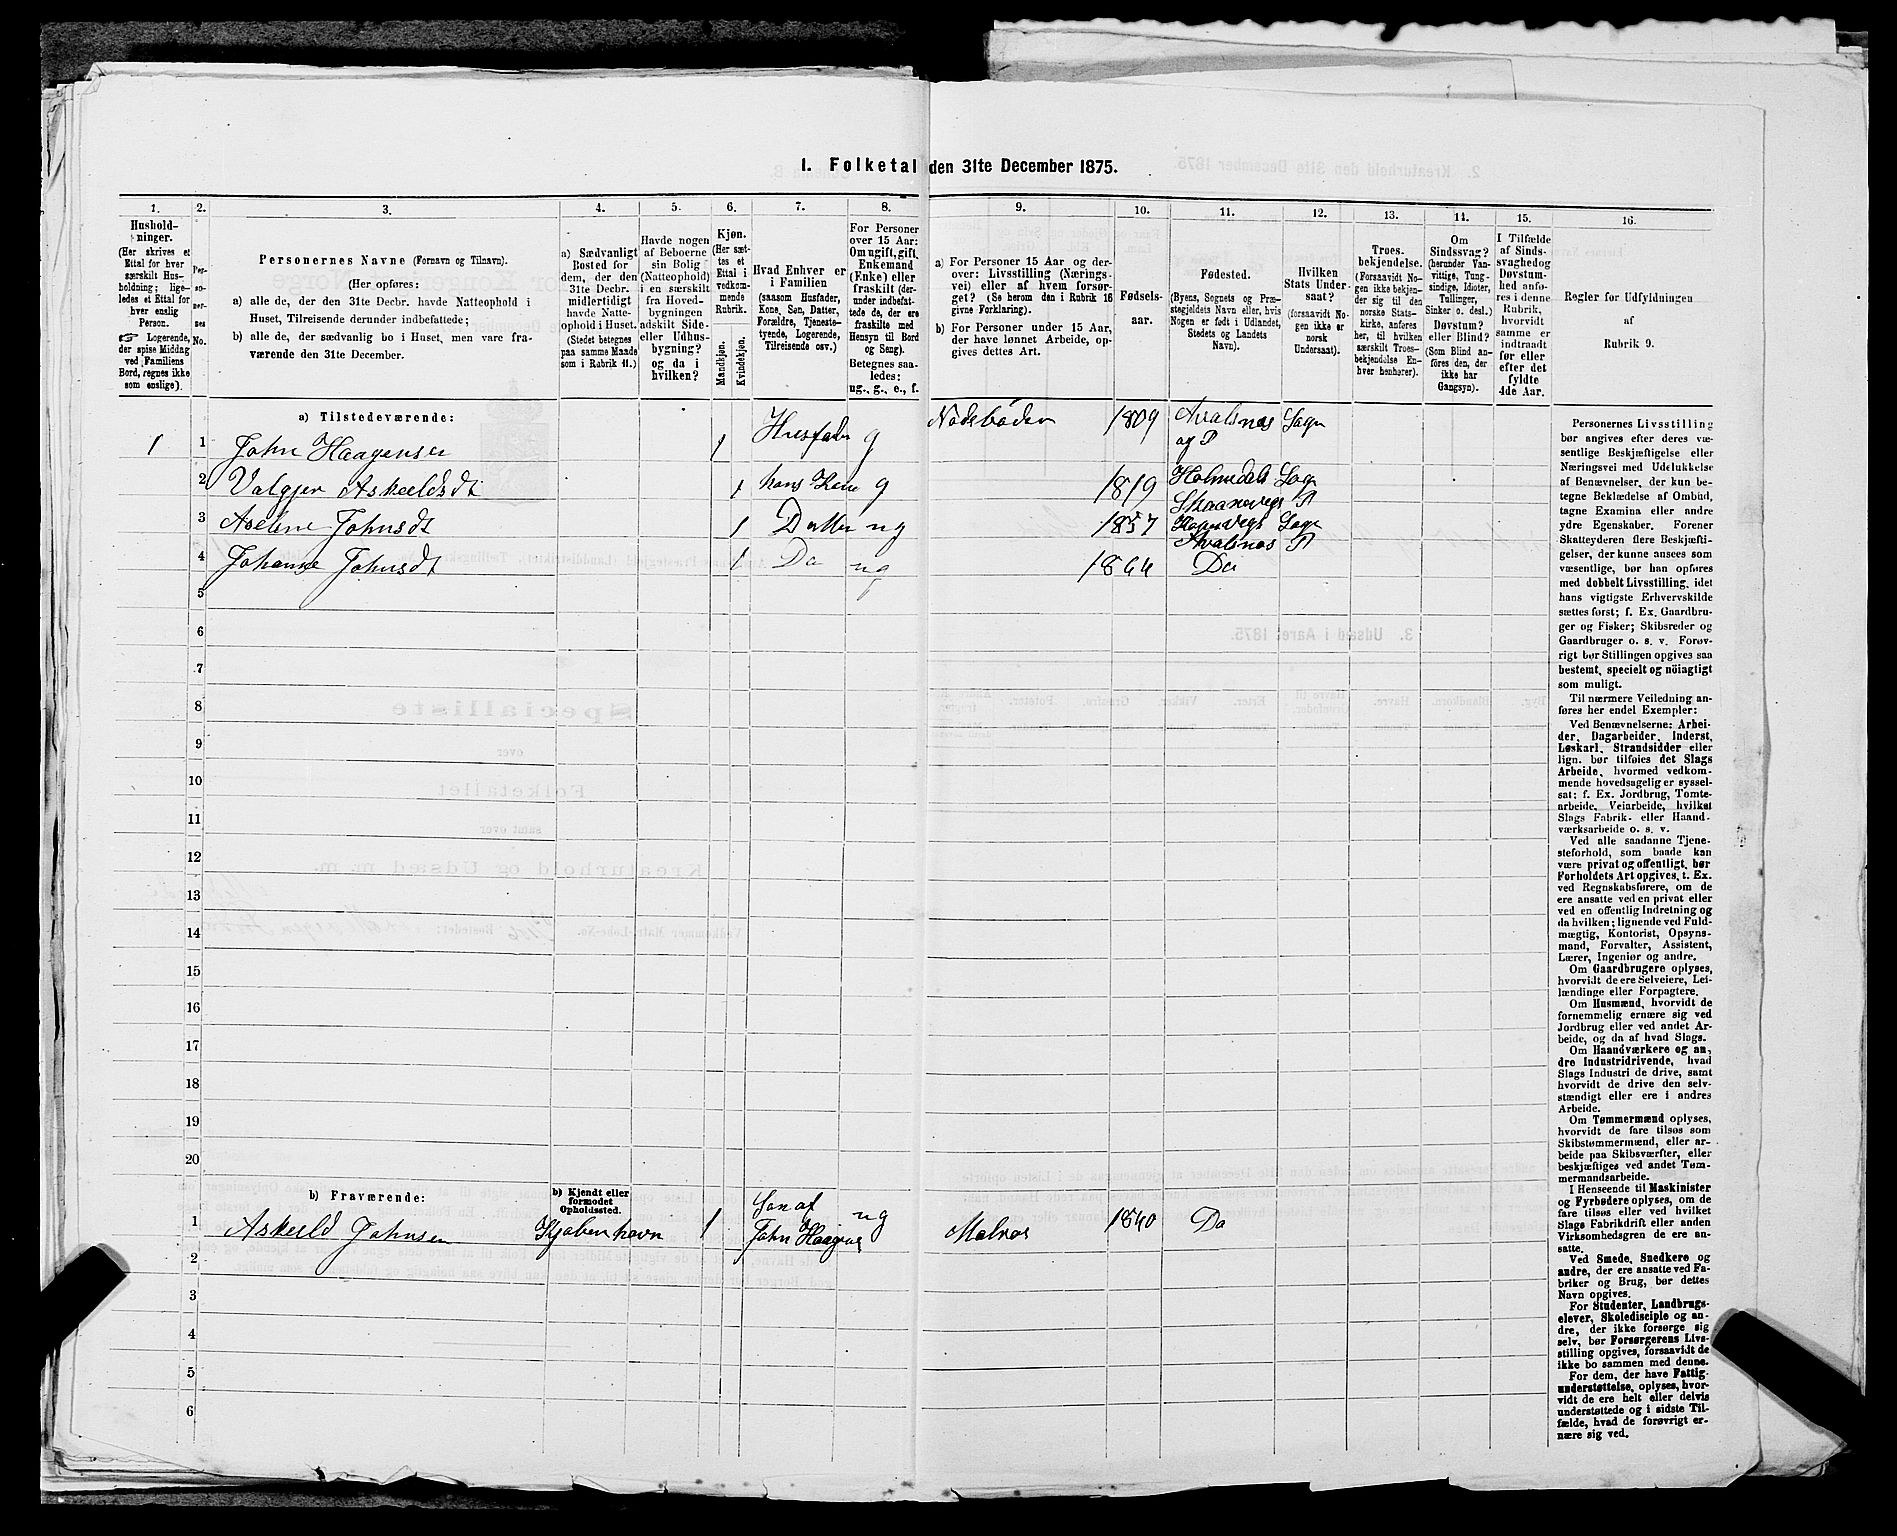 1. Folketal den 31te December 1875.
1. 2. 3. 4. 5. 6. 7. 8. 9. 10. 11. 12. 13. 14. 15. 16.
Hushold-
ninger.
(Her skrives et
Ettal for hver
særskilt Hus-
holdning; lige-
ledes et Ettal for
hver enslig
Person.
☞ Logerende,
der spise Middag
ved Familiens
Bord, regnes ikke
som enslige).
Per-
so-
ner-
nes
No.
Personernes Navne (Fornavn og Tilnavn).
(Her opføres:
a) alle de, der den 31te Decbr. havde Natteophold i
Huset, Tilreisende derunder indbefattede;
b) alle de, der sædvanlig bo i Huset, men vare fra-
værende den 31te December.
a) Sædvanligt
Bosted for
dem, der den
31te Decbr.
midlertidigt
havde Natte-
ophold i Huset.
(Stedet betegnes
paa samme Maade
som i Rubrik 11.)
Havde nogen
af Beboerne
sin Bolig
(Natteophold)
i en særskilt
fra Hoved-
bygningen
adskilt Side-
eller Udhus-
bygning?
og da i
hvilken?
Kjøn.
(Her sæt-
tes et
Ettal i
vedkom-
mende
Rubrik.
Mandkjøn.
Kvindekjøn.
Hvad Enhver er
i Familien
(saasom Husfader,
Kone, Søn, Datter,
Forældre, Tjeneste-
tyende, Logerende,
Tilreisende osv.)
For Personer
over 15 Aar:
Om ugift, gift,
Enkemand
(Enke) eller
fraskilt (der-
under indbefat-
tede de, der ere
fraskilte med
Hensyn til Bord
og Seng).
Betegnes saa-
ledes:
ug., g., e., f.
a) For Personer 15 Aar og der-
over: Livsstilling (Nærings-
vei) eller af hvem forsør-
get? (Se herom den i Rubrik 16
givne Forklaring).
b) For Personer under 15 Aar,
der have lønnet Arbeide, op-
gives dettes Art.
Fødsels-
aar.
Fødested.
(Byens, Sognets og Præ-
stegjeldets Navn, eller, hvis
Nogen er født i Udlandet,
Stedets og Landets
Navn).
Hvilken
Stats Under-
saat?
(forsaavidt No-
gen ikke er
norsk
Undersaat).
Troes-
bekjendelse.
(Forsaavidt No-
gen ikke bekjen-
der sig til den
norske Stats-
kirke, anføres
her, til hvilken
særskilt Troes-
bekjendelse En-
hver henhører).
Om
Sindssvag?
(herunder Van-
vittige, Tung-
sindige, Idioter,
Tullinger,
Sinker o. desl.)
Døvstum?
eller Blind?
(Som Blind an-
føres den, der
ikke har
Gangsyn).
I Tilfælde
af Sinds-
svaghed og
Døvstum-
hed anfø-
res i denne
Rubrik,
hvorvidt
samme er
indtraadt
før eller
efter det
fyldte
4de Aar.
Regler for Udfyldningen
af
Rubrik 9.
a) Tilstedeværende:
1 1 John Haagensen 1 Husfader g Nodebøder 1809 Avalsnæs Sogn
og P
2 Valgjer Askeeldsdt 1 hans Kone g 1819 Holmedels Sogn
Skaanevigs P
3 Aseline Johnsdt 1 Datter ug 1857 Sogn
Avalsnæs P
4 Johanne Johnsdt 1 Do ug 1866 Do
5
6
7
8
9
10
11
12
13
14
15
16
17
18
19
20
b) Fraværende:
b) Kjendt eller
formodet
Opholdssted.
1 Askeeld Johnsen Kjøbenhavn 1 Søn af
John Haagens ug Matros 1840 Do
2
3
4
5
6
Personernes Livsstilling
bør angives efter deres væ-
sentlige Beskjæftigelse eller
Næringsvei med Udelukkelse
af Benævnelser, der kun be-
tegne Beklædelse af Ombud,
tagne Examina eller andre
ydre Egenskaber. Forener
Skatteyderen flere Beskjæfti-
gelser, der kunne ansees som
væsentlige, bør han opføres
med dobbelt Livsstilling, idet
hans vigtigste Erhvervskilde
sættes først; f. Ex. Gaardbru-
ger og Fisker; Skibsreder og
Gaardbruger o. s. v. Forøv-
rigt bør Stillingen opgives saa
bestemt, specielt og nöiagtigt
som muligt.
Til nærmere Veiledning an-
føres her endel Exempler:
Ved Benævnelserne: Arbei-
der, Dagarbeider, Inderst,
Løskarl, Strandsidder eller
lign. bør tilføies det Slags
Arbeide, hvormed vedkom-
mende hovedsagelig er syssel-
sat; f. Ex. Jordbrug, Tomte-
arbeide, Veiarbeide, hvilket
Slags Fabrik- eller Haand-
værksarbeide o. s. v.
Ved alle saadanne Tjene-
steforhold, som baade kan
være privat og offentligt, bør
Forholdets Art opgives, t. Ex.
ved Regnskabsførere, om de
ere ansatte ved en privat eller
ved en offentlig Indretning og
da hvilken; lignende ved Fuld-
mægtig, Kontorist, Opsyns-
mand, Forvalter, Assistent,
Lærer, Ingeniør og andre.
Om Gaardbrugere oplyses,
hvorvidt de ere Selveiere, Lei-
lændinge eller Forpagtere.
Om Husmænd, hvorvidt de
fornemmelig ernære sig ved
Jordbrug eller ved andet Ar-
beide, og da af hvad Slags.
Om Haandværkere og an,
dre Industridrivende, hvad
Slags Industri de drive, samt
hvorvidt de drive den selv-
stændigt eller ere i andres
Arbeide.
Om Tømmermænd oplyses,
hvorvidt de fare tilsøs som
Skibstømmermænd, eller ar-
beide paa Skibsværfter, eller
beskjæftiges ved andet Tøm-
mermandsarbeide.
I Henseende til Maskinister
og Fyrbødere oplyses, om de
fare tilsøs eller ved hvilket
Slags Fabrikdrift eller anden
Virksomhedsgren de ere an-
satte.
Ved Smede, Snedkere og
andre, der ere ansatte ved Fa-
briker og Brug, bør dettes
Navn opgives.
For Studenter, Landbrugs-
elever, Skoledisciple og an-
dre, der ikke forsørge sig
selv, bør Forsørgerens Livs-
stilling opgives, forsaavidt de
ikke bo sammen med denne.
For dem, der have Fattig-
understøttelse, oplyses, hvor-
vidt de ere helt eller delvis
understøttede og i sidste Til-
fælde, hvad de forøvrigt er-
nære sig ved.